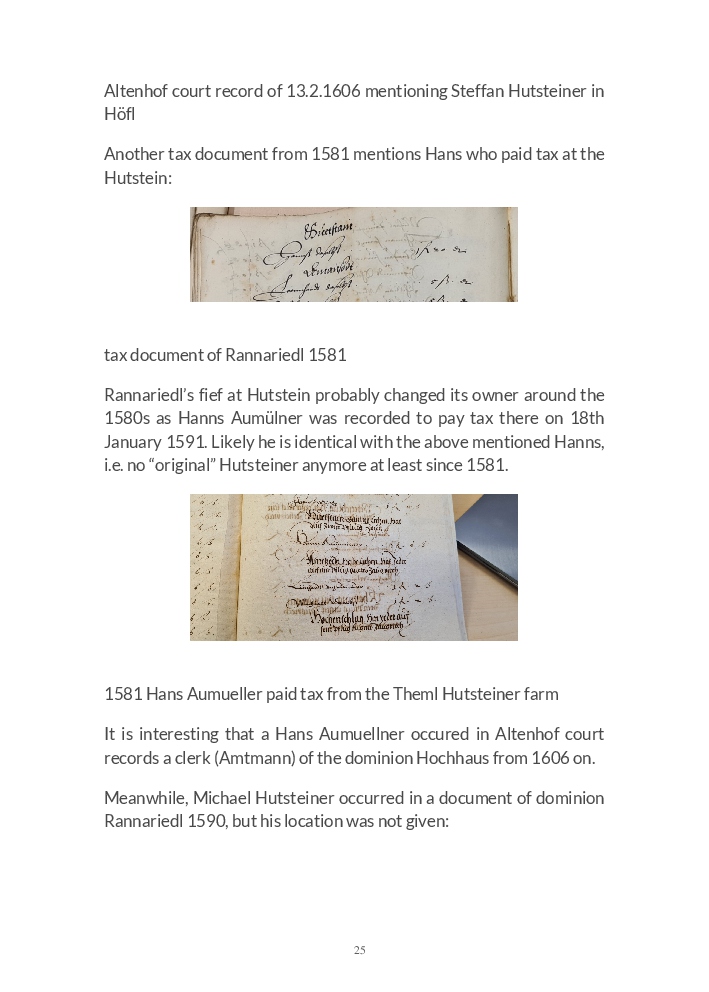 Altenhof court record of 13.2.1606 mentioning Steffan Hutsteiner in
Höfl
Another tax document from 1581 mentions Hans who paid tax at the
Hutstein:
tax document of Rannariedl 1581
Rannariedl's fief at Hutstein probably changed its owner around the
1580s as Hanns Aumülner was recorded to pay tax there on 18th
January 1591. Likely he is identical with the above mentioned Hanns,
i.e. no “original” Hutsteiner anymore at least since 1581.
1581 Hans Aumueller paid tax from the Theml Hutsteiner farm
It is interesting that a Hans Aumuellner occured in Altenhof court
records a clerk (Amtmann) of the dominion Hochhaus from 1606 on.
Meanwhile, Michael Hutsteiner occurred in a document of dominion
Rannariedl 1590, but his location was not given:
25